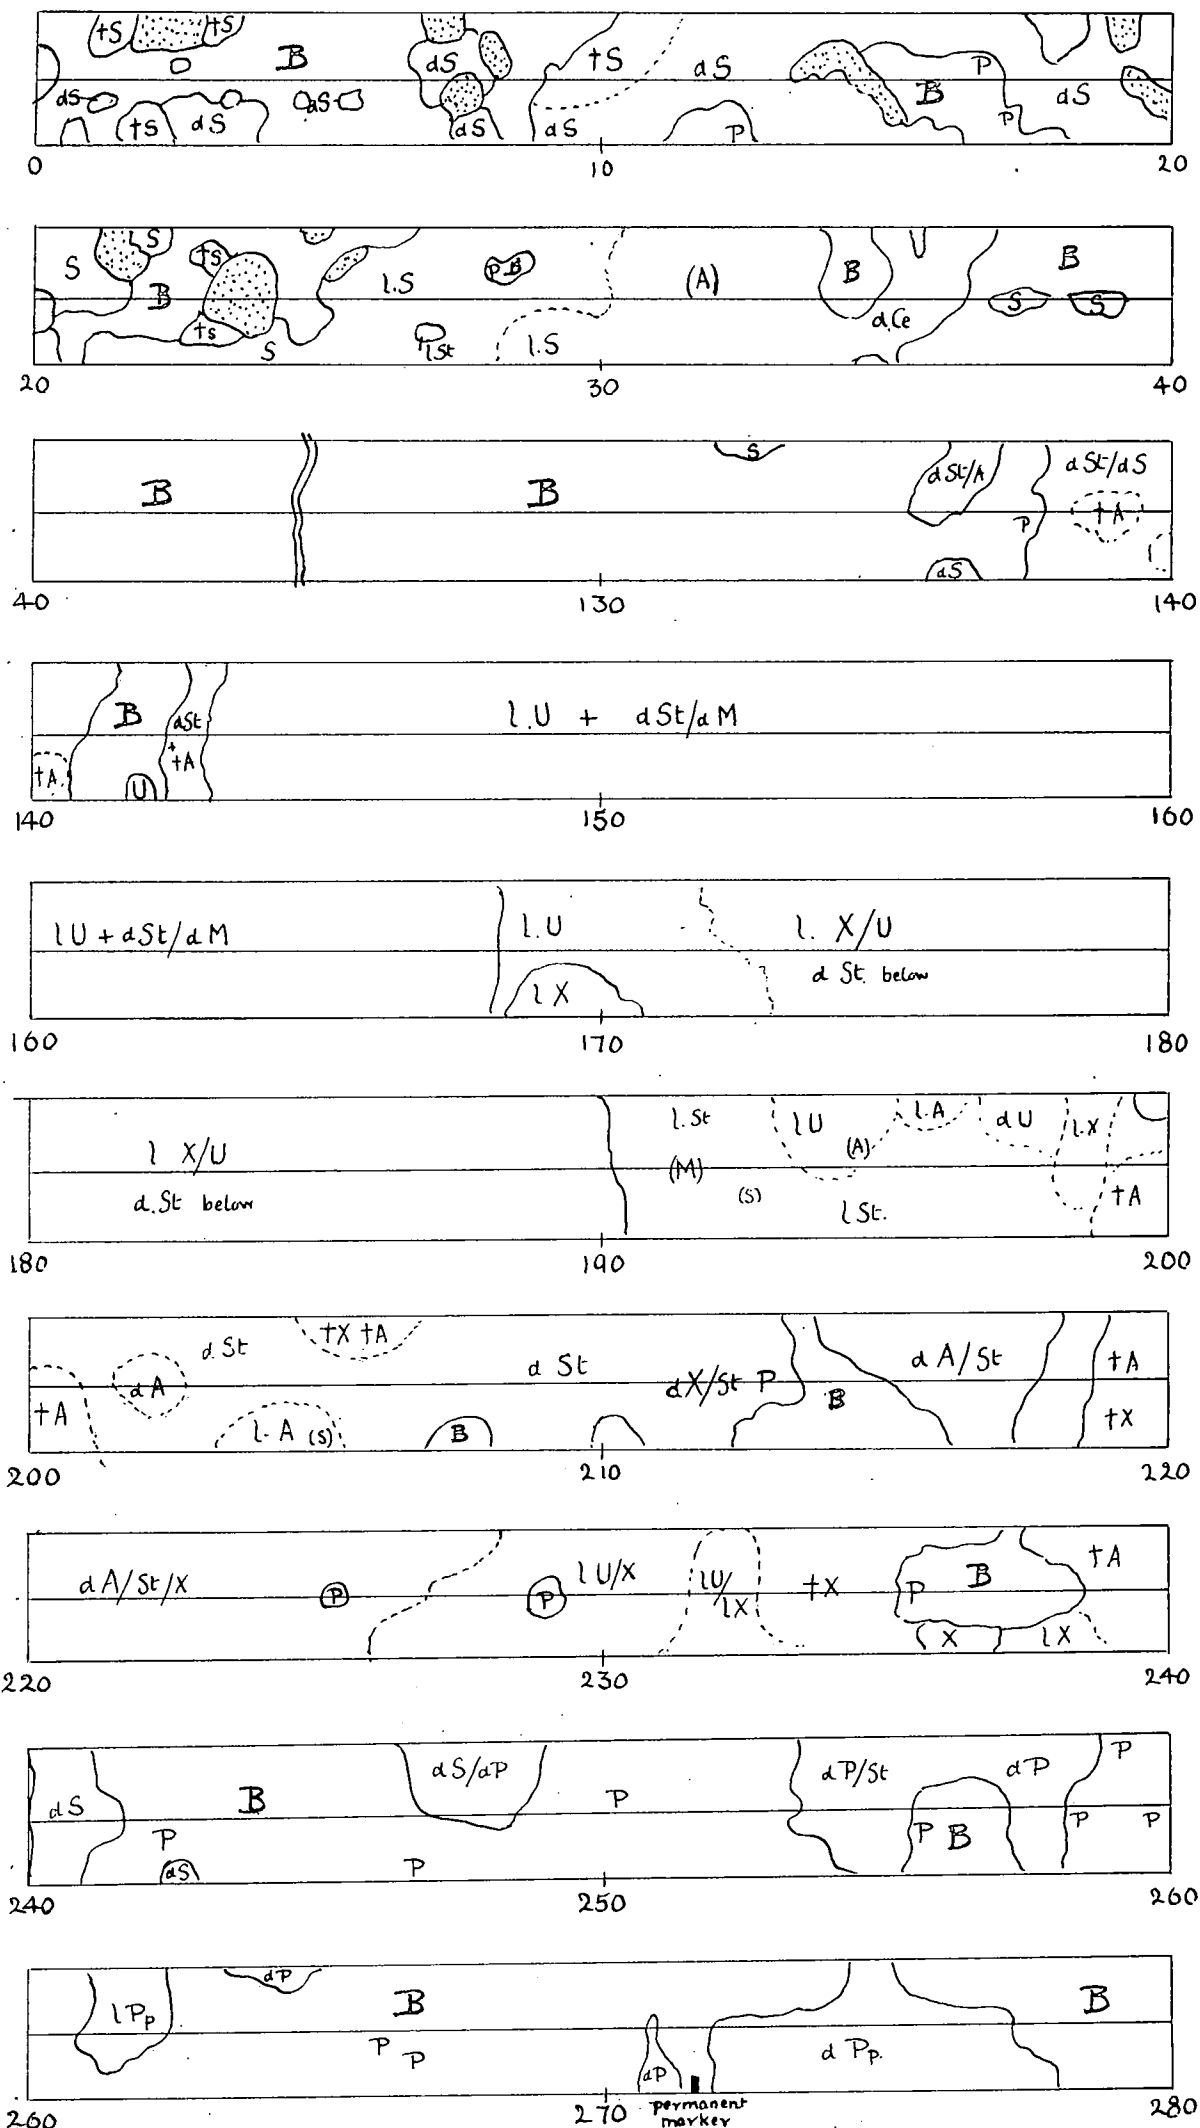 tS tS B dS tS dS P
dS dS B dS
tS dS dS dS P P
0 10 20
S l.S tS P B B B
B l.S (A) S S
tS S lSt l.S d.Ce
20 30 40
S dSt/A dSt/dS
B B P tA
dS
40 130 140
B dSt l.U + dSt/dM
tA + tA
U
140 150 160
lU + dSt/dM l.U l. X/U
lX d St. below
160 170 180
l X/U l.St lU l.A dU l.X
(A)
(M)
d.St below (S) l St. tA
180 190 200
d.St tX tA d A/St tA
dA d St dX/St P B
tA l-A (S) B tX
200 210 220
dA/St/X P P lU/X lU/lX tX P B tA
X lX
220 230 240
dS/dP dP/St dP P
dS B P
P P B P P
dS P
240 250 260
dP
lPp B B
P P d Pp.
dP
260 270 280
permanent
marker